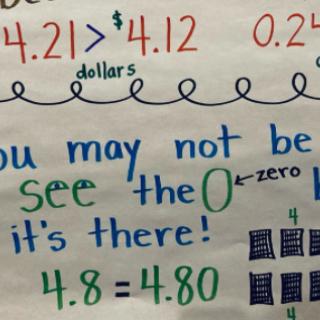 4.21 > $4.12 0.24
dollars
ou may not be
see the 0 ← zero
it's there!
4
4.8 = 4.80
4